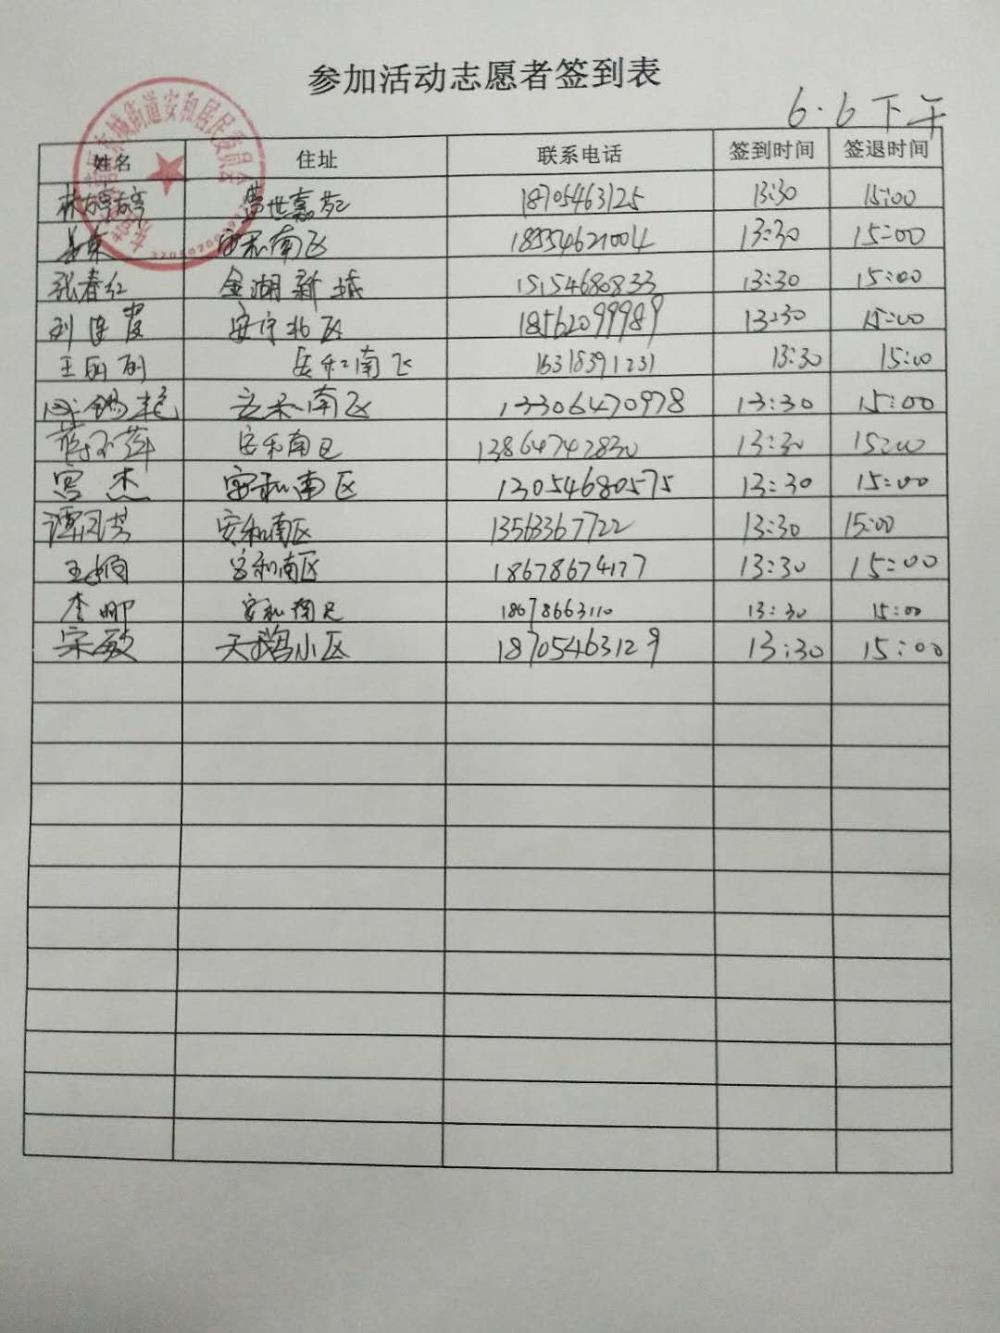 参加活动志愿者签到表
6.6下午
姓名 住址 联系电话 签到时间 签退时间
18705463125 13:30 15:00
安和南区 18554621004 13:30 15:00
张春红 金湖新城 15154680833 13:30 15:00
刘 霞 安宁北区 18562099989 13:30 15:00
王丽丽 安和南区 13:30 15:00
安和南区 13306470978 13:30 15:00
安和南区 13864742830 13:30 15:00
宫杰 安和南区 13054680575 13:30 15:00
谭风芳 安和南区 13563367722 13:30 15:00
王娟 安和南区 18678674177 13:30 15:00
李娜 安和南区 18678663110 13:30 15:00
宋敏 天鹅小区 18705463129 13:30 15:00